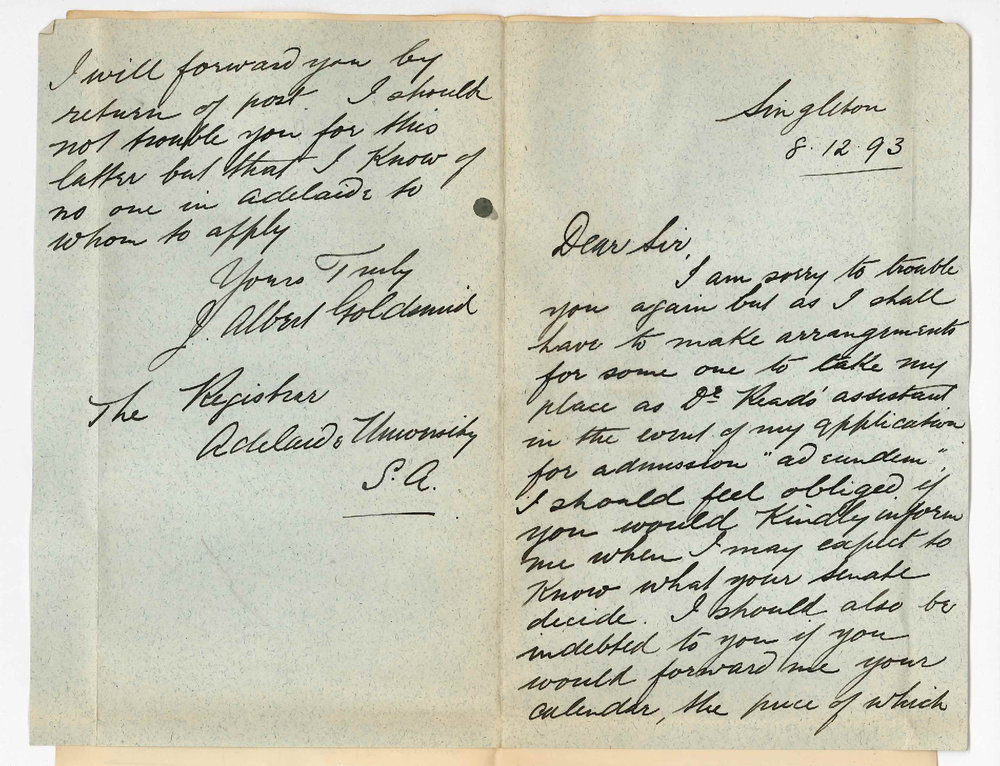 Singleton
8. 12. 93
Dear Sir,
I am sorry to trouble
you again but as I shall
have to make arrangements
for some one to take my
place as Dr. Read's assistant
in the event of my application
for admission "ad eundem".
I should feel obliged if
you would Kindly inform
me when I may expect to
Know what your senate
decide. I should also be
indebted to you if you
would forward me your
calendar, the price of which
I will forward you by
return of post. I should
not trouble you for this
latter but that I Know of
no one in Adelaide to
whom to apply
Yours Truly
J. Albert Goldsmid
The Registrar
Adelaide University
S. A.